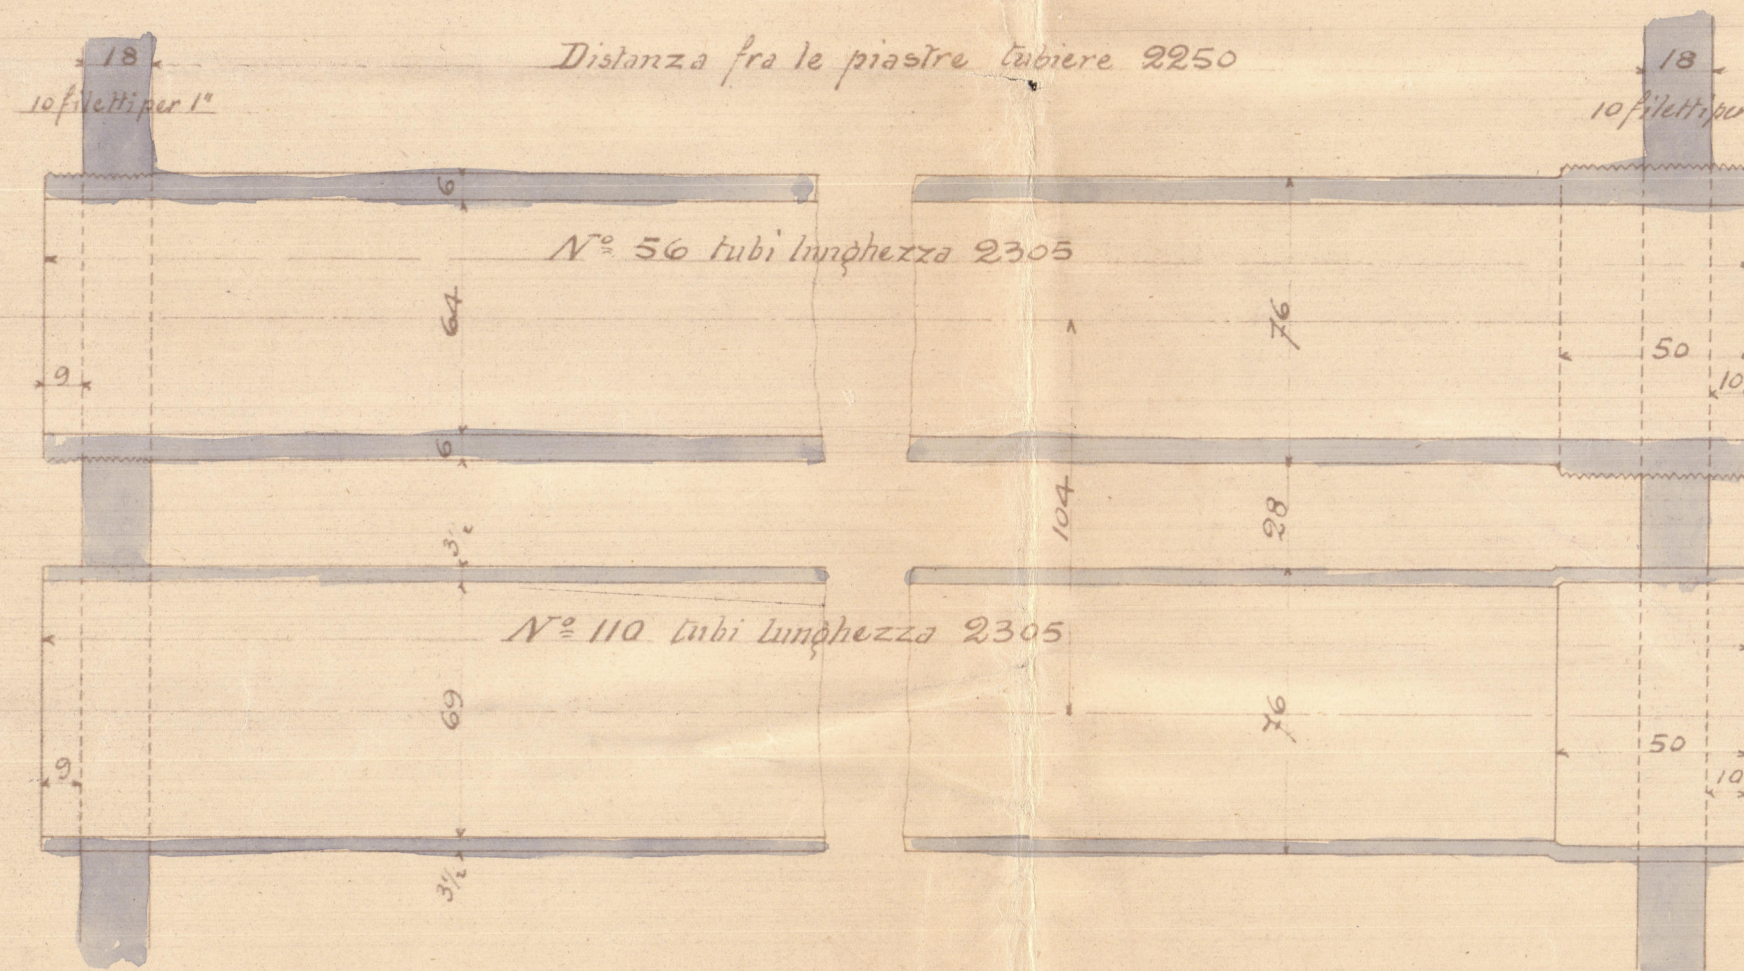 18
Distanza fra le piastre tubiere 2250
18
10 filetti per 1"
10 filetti per
6
Nº 56 tubi lunghezza 2305
64
76
50
9
10
6
3½
104
28
Nº 110 tubi lunghezza 2305
69
76
50
9
10
3½